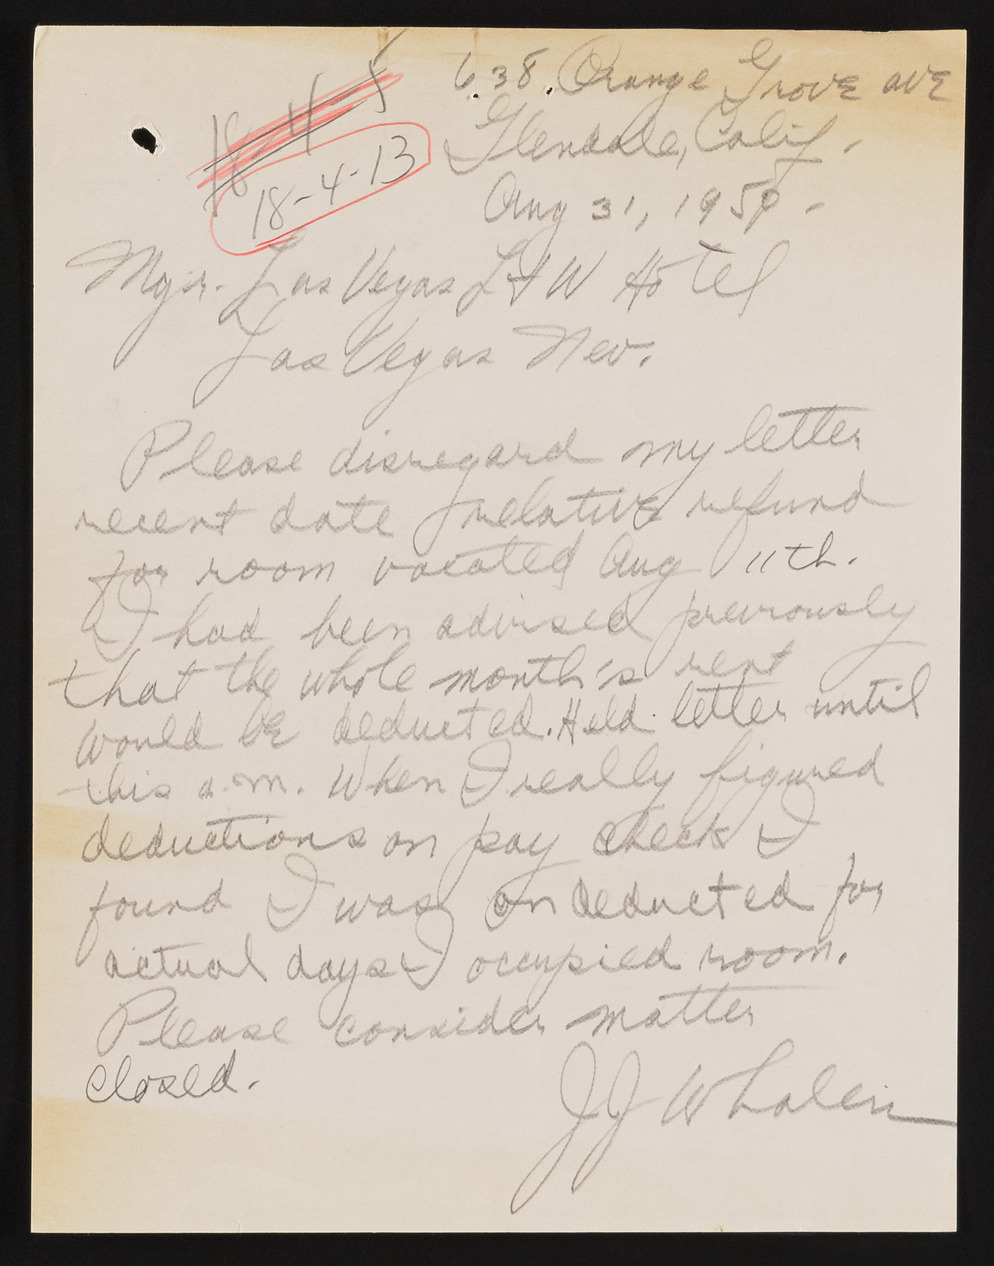 18-4-5
638 Orange Grove ave
Glendale, Calif.
18-4-13
Aug 31, 1950.
Mgr. Las Vegas L & W Hotel
Las Vegas Nev.
Please disregard my letter
recent date relative refund
for room vacated Aug 11th.
I had been advised previously
that the whole month's rent
would be deducted. Held letter until
this a.m. When I really figured
deductions on pay check I
found I was on deducted for
actual days I occupied room.
Please consider matter
closed.
J J Whalen